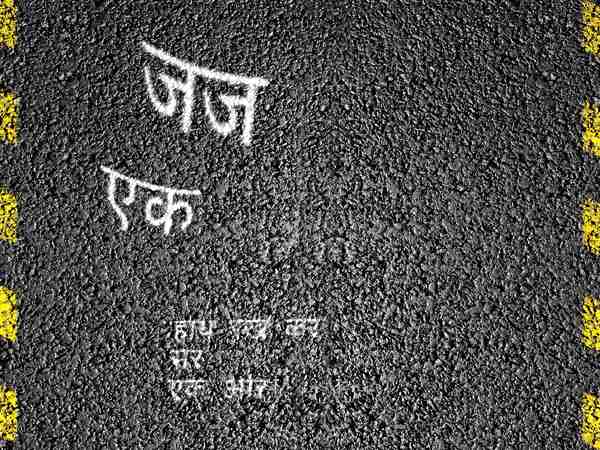 जज
एक
हाथ रख कर
सर
एक और